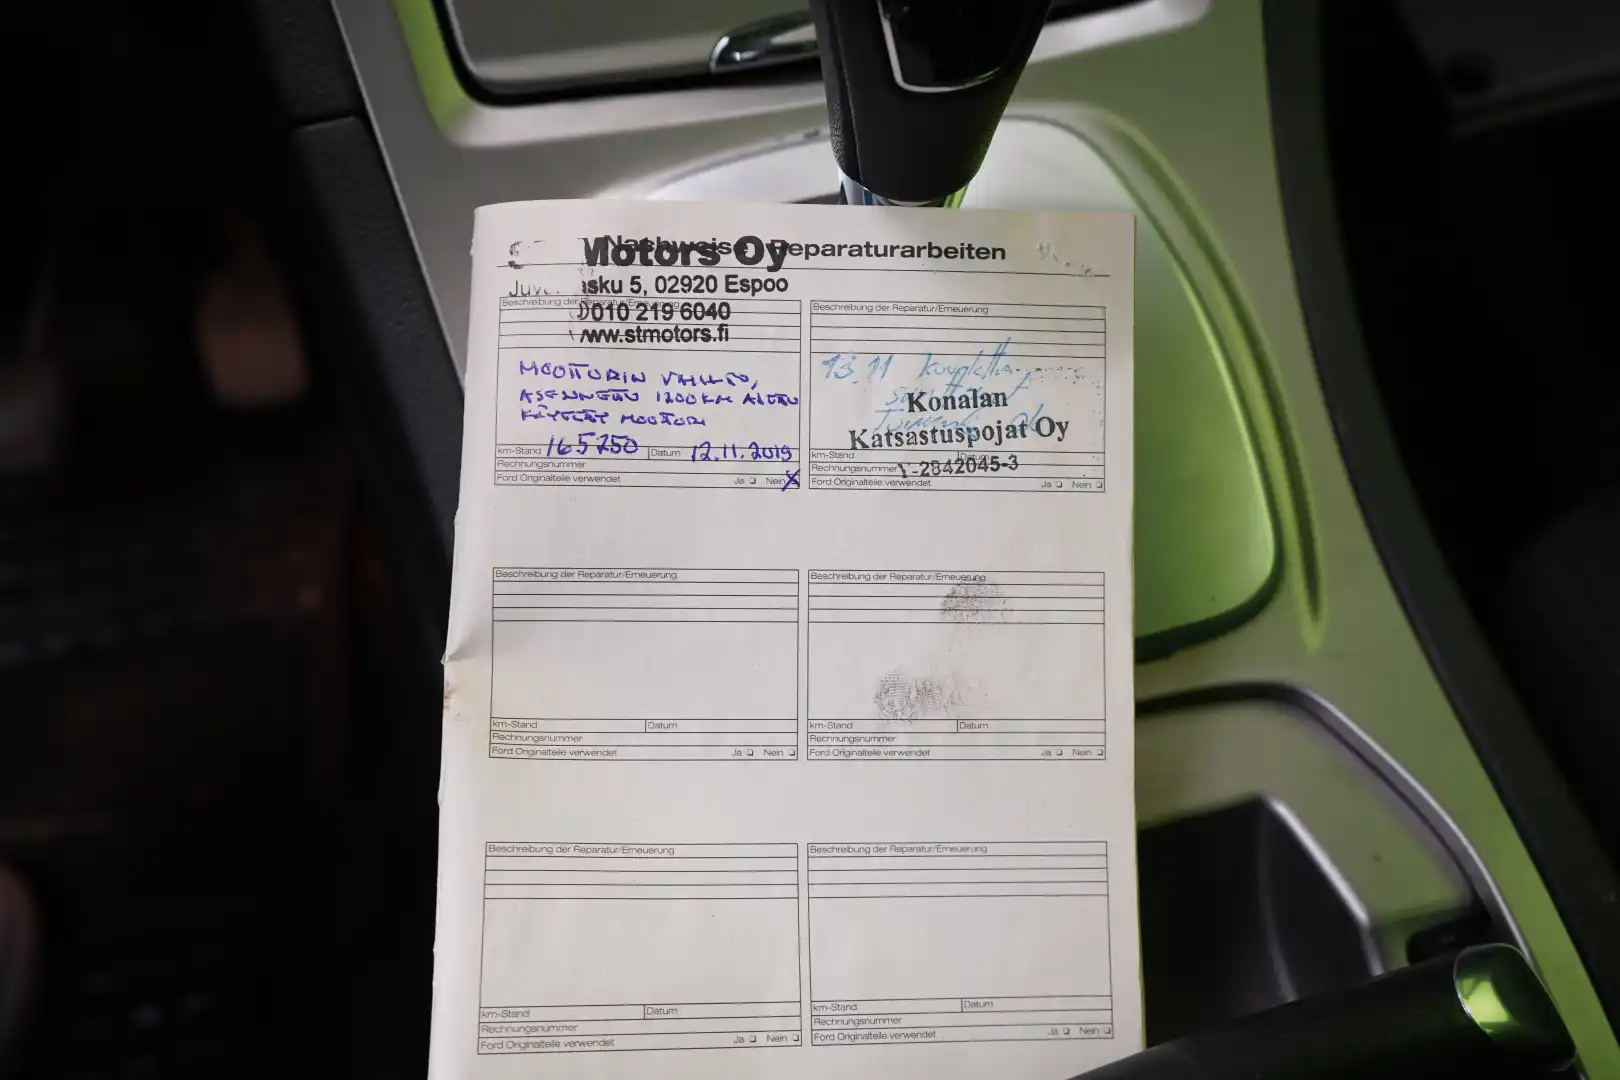 Nachweise Reparaturarbeiten
Motors Oy
5, 02920 Espoo
010 219 6040
www.stmotors.fi
Beschreibung der Reparatur/Erneuerung
MOOTTORIN VAIHTO,
ASENNETTU 1200KM AJETTU
KÄYTETTY MOOTTORI
km-Stand 165750 Datum 12.11.2019
Rechnungsnummer
Ford Originalteile verwendet Ja Nein X
Beschreibung der Reparatur/Erneuerung
13.11
Konalan
Katsastuspojat Oy
Y-2842045-3
km-Stand Datum
Rechnungsnummer
Ford Originalteile verwendet Ja Nein
Beschreibung der Reparatur/Erneuerung
km-Stand Datum
Rechnungsnummer
Ford Originalteile verwendet Ja Nein
Beschreibung der Reparatur/Erneuerung
km-Stand Datum
Rechnungsnummer
Ford Originalteile verwendet Ja Nein
Beschreibung der Reparatur/Erneuerung
km-Stand Datum
Rechnungsnummer
Ford Originalteile verwendet Ja Nein
Beschreibung der Reparatur/Erneuerung
km-Stand Datum
Rechnungsnummer
Ford Originalteile verwendet Ja Nein